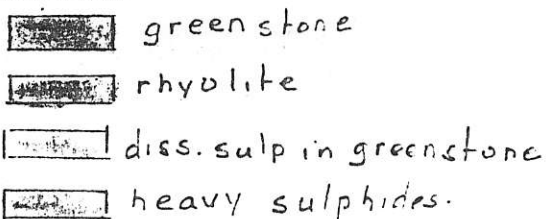 greenstone
rhyolite
diss. sulp in greenstone
heavy sulphides.